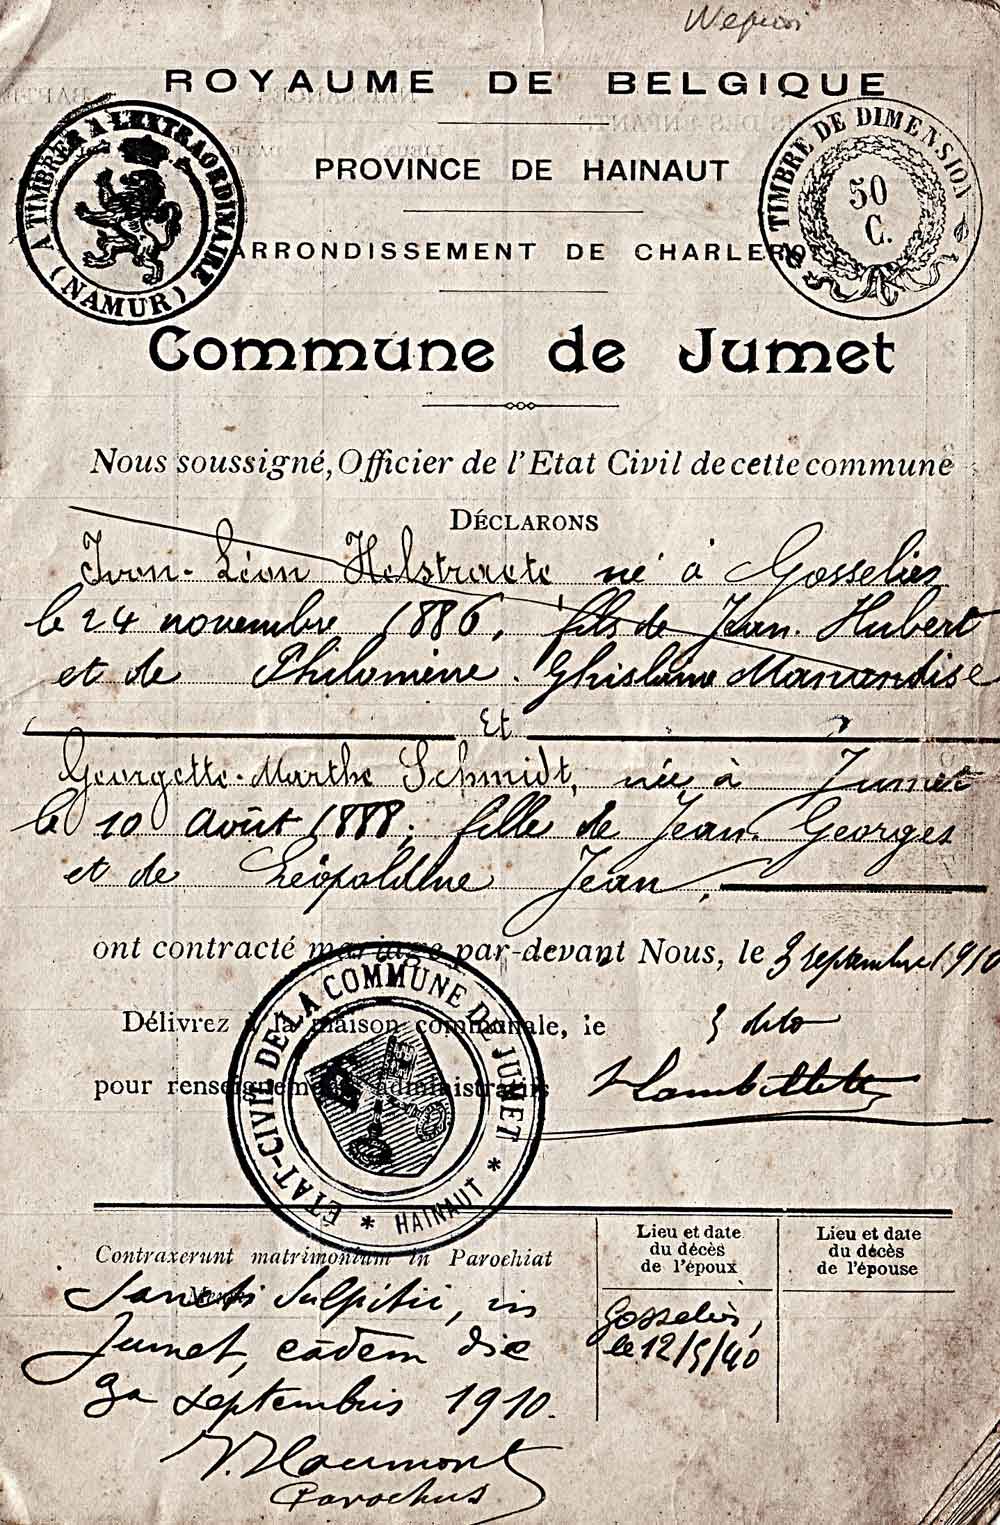 ROYAUME DE BELGIQUE
A TIMBRER A L'EXTRAORDINAIRE
(NAMUR)
TIMBRE DE DIMENSION
50
C.
PROVINCE DE HAINAUT
ARRONDISSEMENT DE CHARLEROI
Commune de Jumet
Nous soussigné, Officier de l'Etat Civil de cette commune
DÉCLARONS
Ivon-Léon Helstraete né à Gosselies
le 24 novembre 1886, fils de Jean-Hubert
et de Philomène-Ghislaine Manandise
Et
Georgette-Marthe Schmidt, née à Jumet
le 10 Août 1888, fille de Jean-Georges
et de Léopoldine Jean,
ont contracté mariage par-devant Nous, le 3 septembre 1910
Délivrez à la maison communale, le 3 dito
pour renseignements administratifs
ÉTAT-CIVIL DE LA COMMUNE DE JUMET
* HAINAUT *
Contraxerunt matrimonium in Parochiat
Sancti Sulpitii, in
Jumet, eâdem die
3a septembris 1910.
Parochus
Lieu et date
du décès
de l'époux
Gosselies,
le 12/5/40
Lieu et date
du décès
de l'épouse